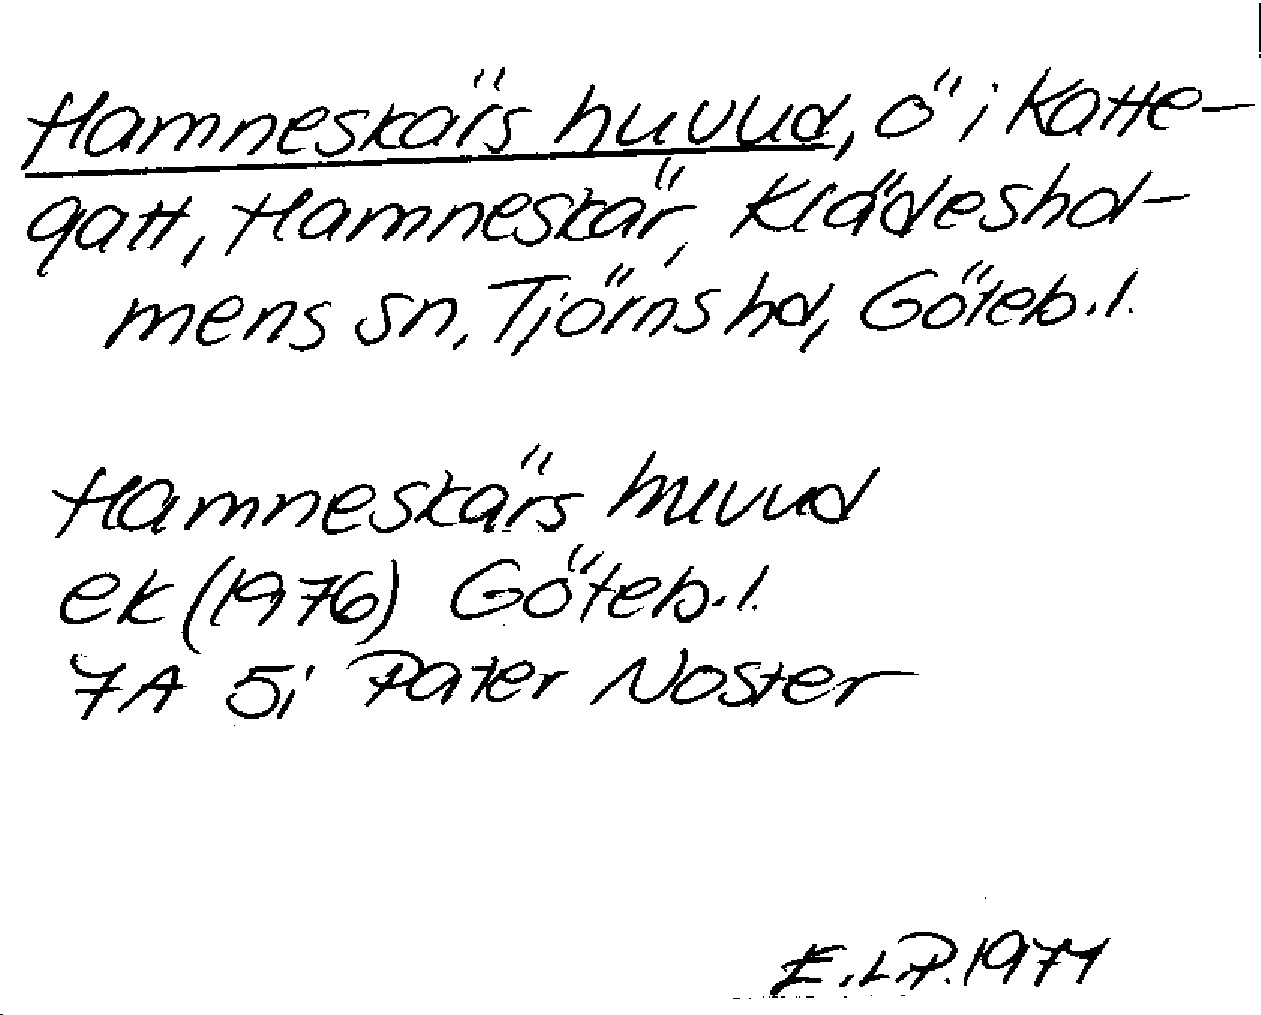 Hamneskärs huvud, ö i Katte-
gatt, Hamneskär, Klädeshol-
mens sn, Tjörns hd, Göteb. l.
Hamneskärs huvud
ek (1976) Göteb. l.
7A 5i Pater Noster
E.L.P. 1977